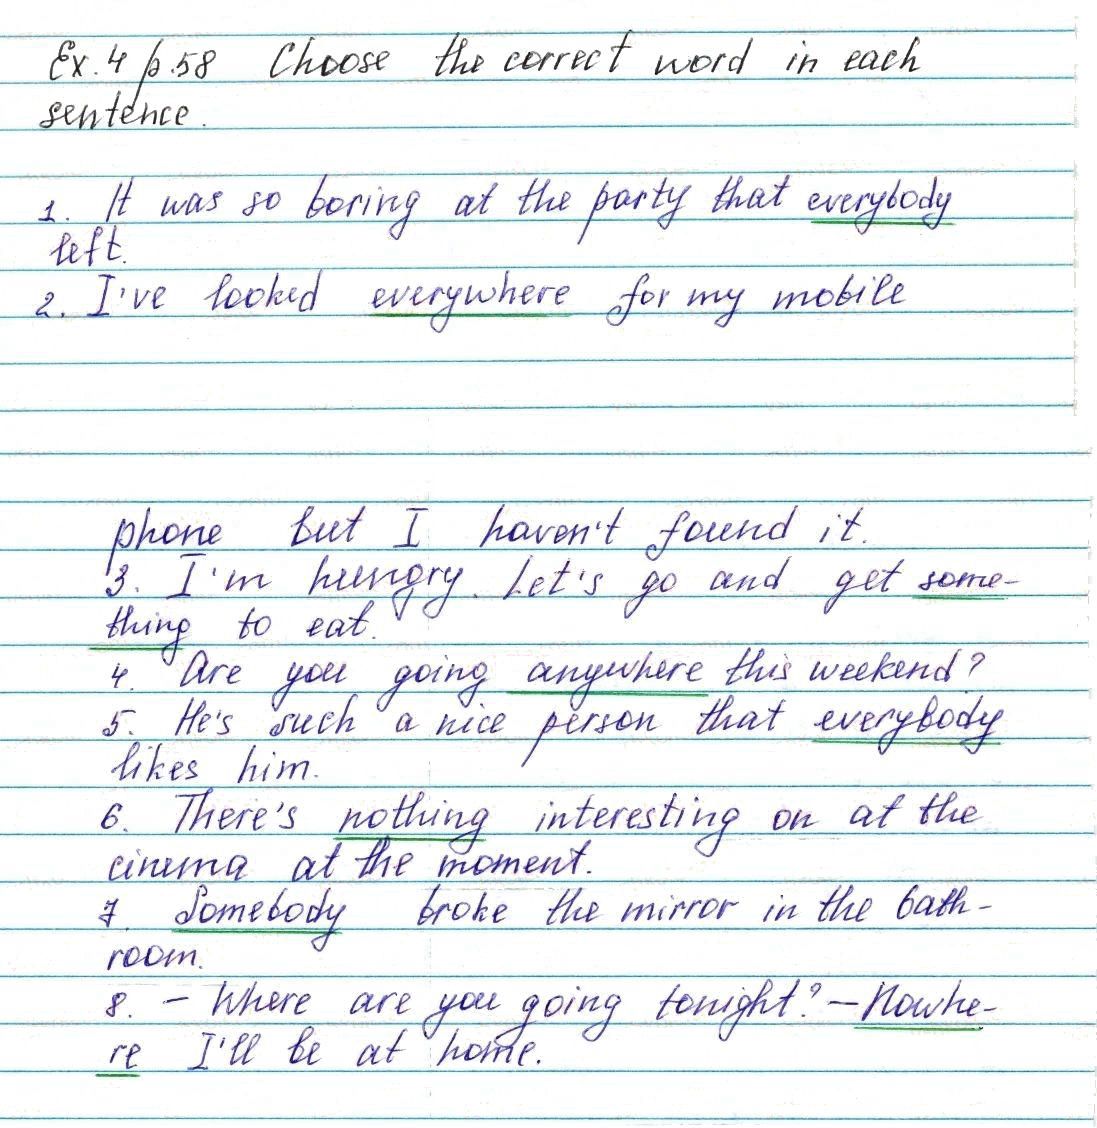 Ex. 4 p. 58 Choose the correct word in each
sentence.
1. It was so boring at the party that everybody
left.
2. I've looked everywhere for my mobile
phone but I haven't found it.
3. I'm hungry. Let's go and get some-
thing to eat.
4. Are you going anywhere this weekend?
5. He's such a nice person that everybody
likes him.
6. There's nothing interesting on at the
cinema at the moment.
7. Somebody broke the mirror in the bath-
room.
8. - Where are you going tonight? - Nowhe-
re I'll be at home.